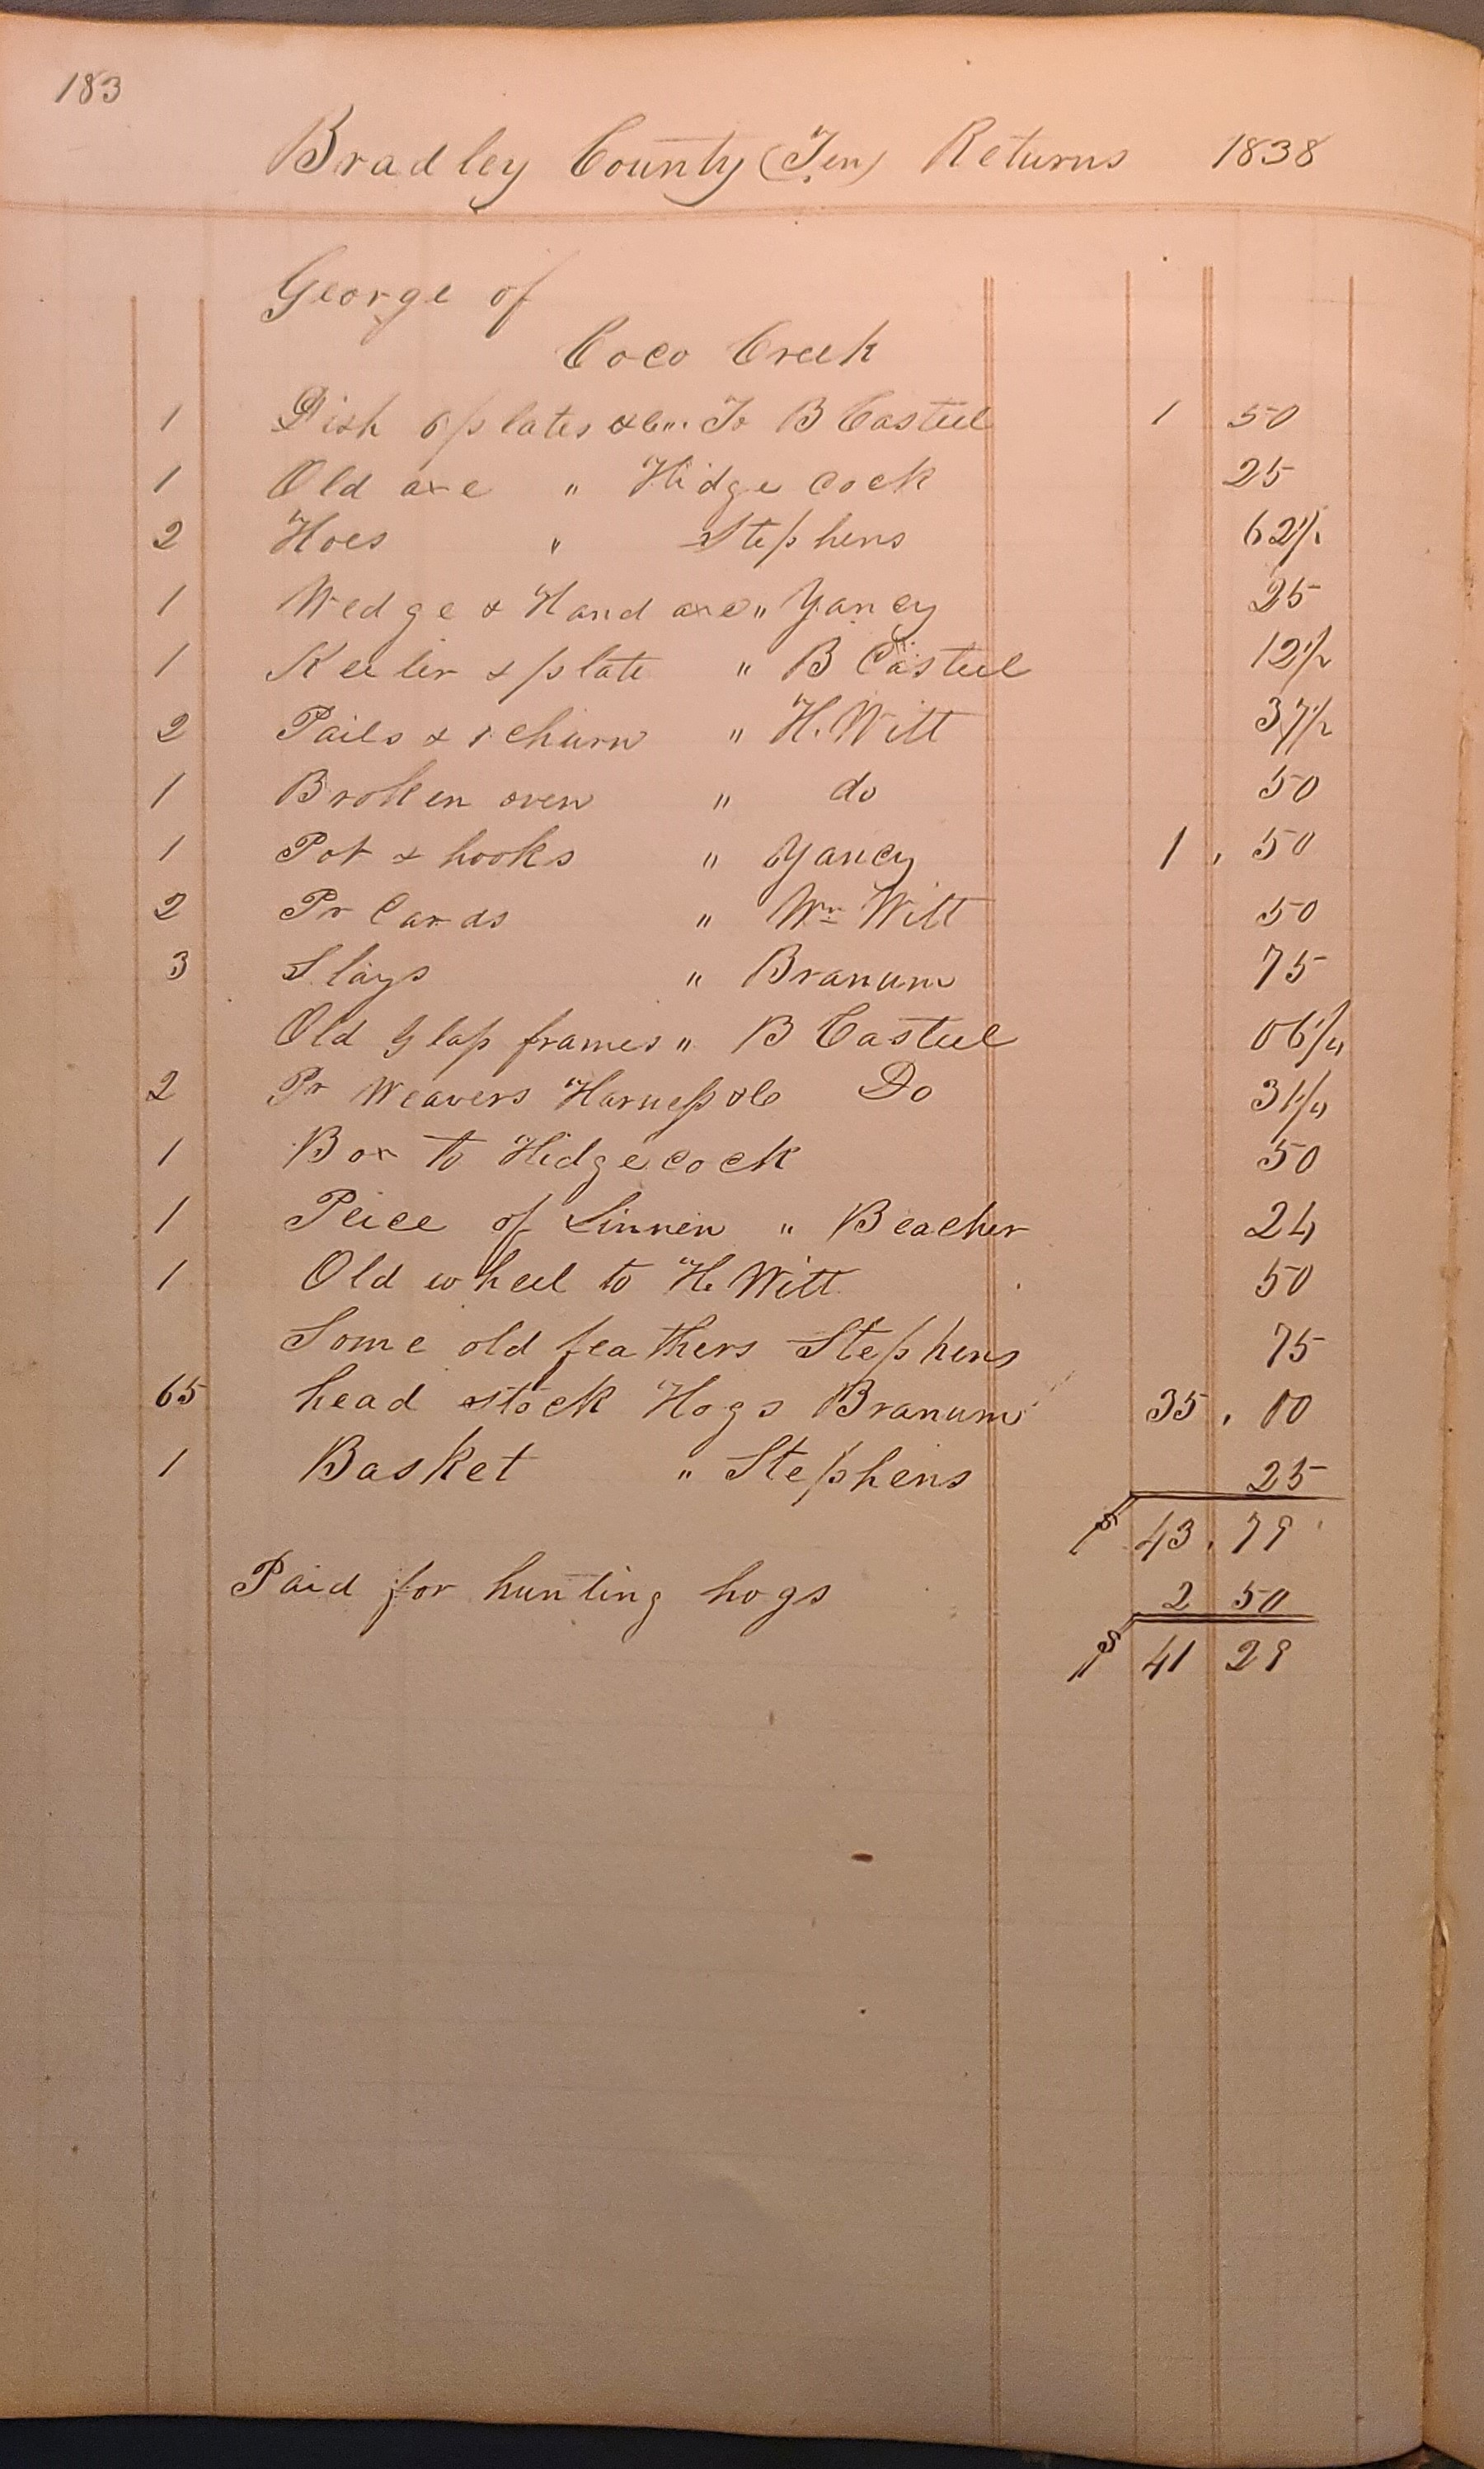 183
Bradley County (Ten) Returns 1838
George of
Coco Creek
1 Dish 6 plates &c " To B Casteel 1 50
1 Old axe " Hidge cock 25
2 Hoes " Stephens 62 1/2
1 Wedge & Hand axe " Yancy 25
1 Keeler & plate " B Casteel 12 1/2
2 Pails & 1 churn " H. Witt 37 1/2
1 Broken oven " do 50
1 Pot & hooks " Yancy 1 . 50
2 Pr Cards " Wm Witt 50
3 Slays " Branum 75
Old Glass frames " B Casteel 06 1/4
2 Pr Weavers Harness &c Do 31 1/4
1 Box to Hidgecock 50
1 Peice of Linnen " Beacher 24
1 Old wheel to H. Witt 50
Some old feathers Stephens 75
65 head stock Hogs Branum 35 . 00
1 Basket " Stephens 25
$ 43 . 79
Paid for hunting hogs 2 50
$ 41 29